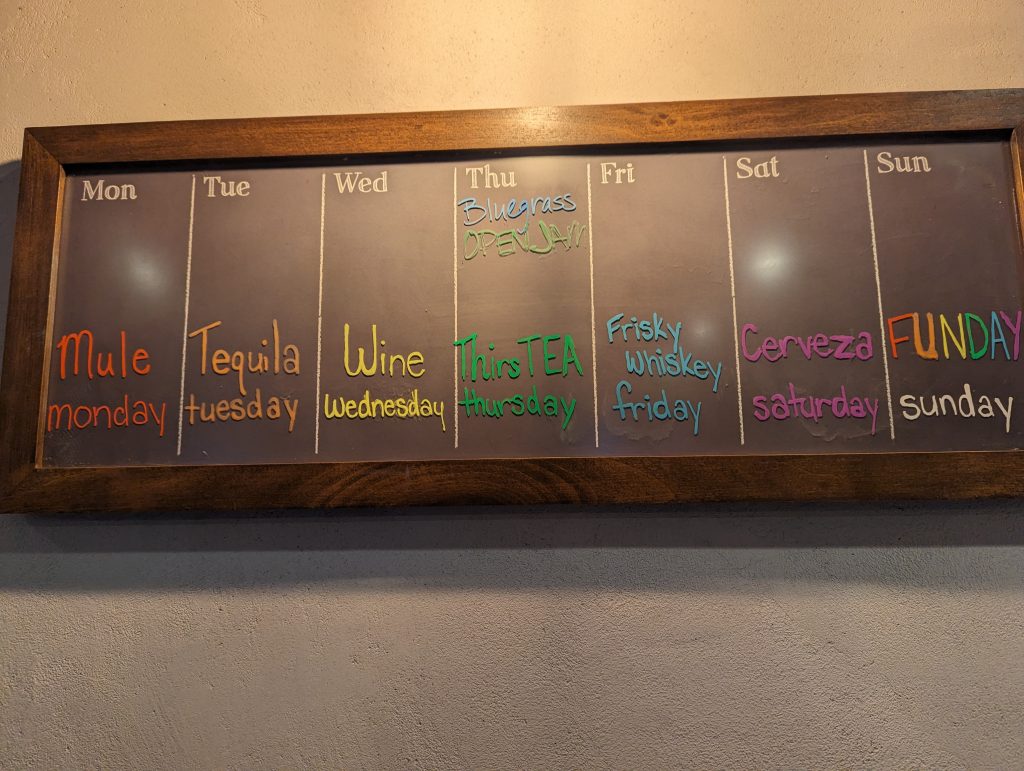 Mon
Mule
monday
Tue
Tequila
tuesday
Wed
Wine
wednesday
Thu
Bluegrass
OPEN JAM
ThirsTEA
thursday
Fri
Frisky
Whiskey
friday
Sat
Cerveza
saturday
Sun
FUNDAY
sunday